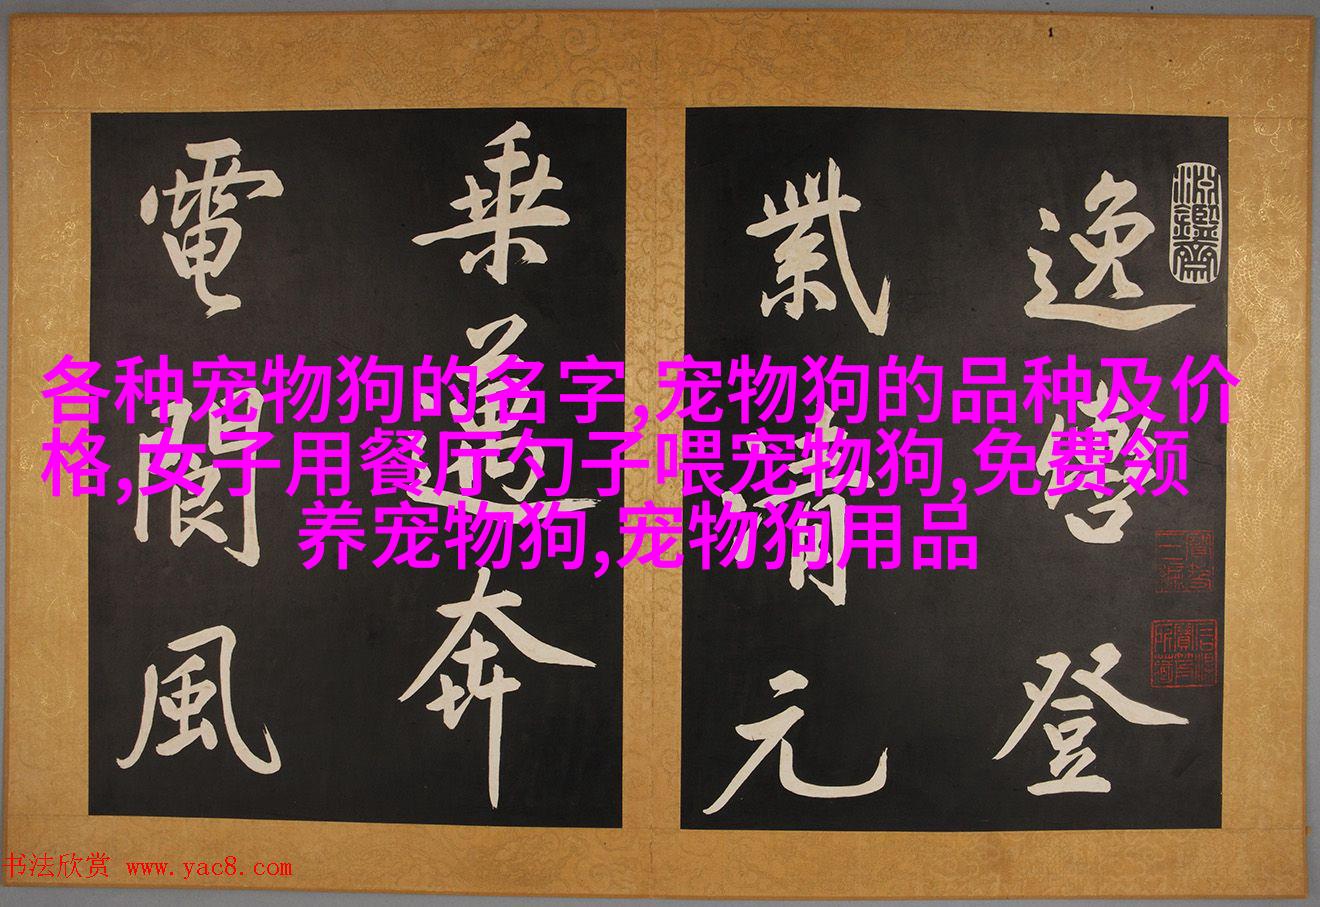 各种宠物狗的名字,宠物狗的品种及价
格,女子用餐厅勺子喂宠物狗,免费领
养宠物狗,宠物狗用品
逸
登
紫清元
乘
奔
電閬風
书法欣赏 www.yac8.com